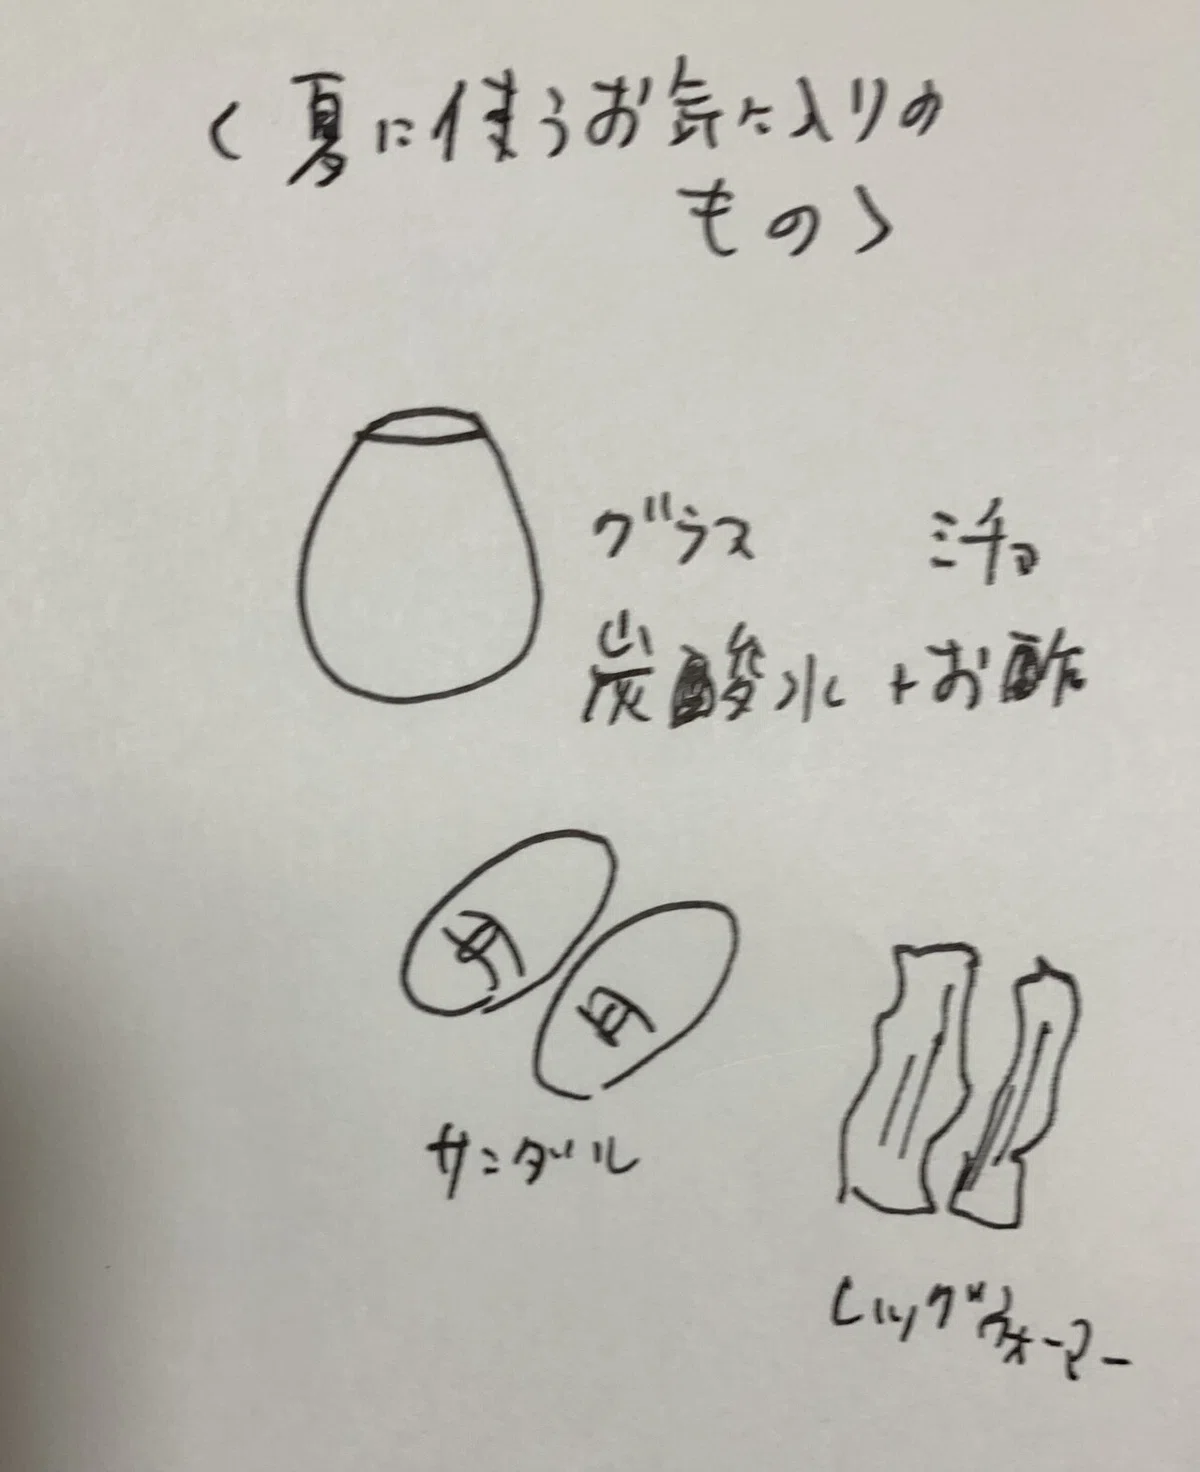 〈夏に使うお気に入りの
もの〉
グラス
ミチョ
炭酸水+お酢
サンダル
レッグウォーマー